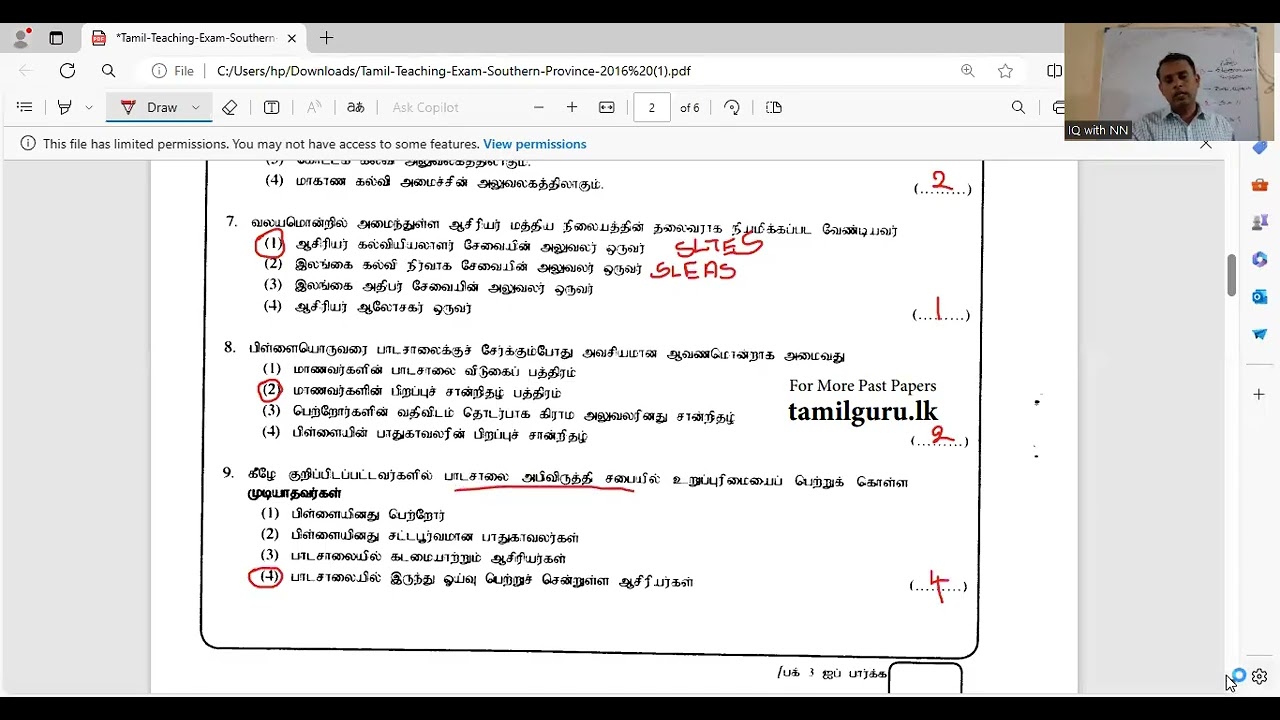 *Tamil-Teaching-Exam-Southern-
File C:/Users/hp/Downloads/Tamil-Teaching-Exam-Southern-Province-2016%20(1).pdf
Draw
Ask Copilot
2 of 6
This file has limited permissions. You may not have access to some features. View permissions
IQ with NN
(3) கோட்டக் கல்வி அலுவலகத்திலாகும்.
(4) மாகாண கல்வி அமைச்சின் அலுவலகத்திலாகும். (...2...)
7. வலயமொன்றில் அமைந்துள்ள ஆசிரியர் மத்திய நிலையத்தின் தலைவராக நியமிக்கப்பட வேண்டியவர்
(1) ஆசிரியர் கல்வியியலாளர் சேவையின் அலுவலர் ஒருவர் SLTES
(2) இலங்கை கல்வி நிர்வாக சேவையின் அலுவலர் ஒருவர் SLEAS
(3) இலங்கை அதிபர் சேவையின் அலுவலர் ஒருவர்
(4) ஆசிரியர் ஆலோசகர் ஒருவர் (...1...)
8. பிள்ளையொருவரை பாடசாலைக்குச் சேர்க்கும்போது அவசியமான ஆவணமொன்றாக அமைவது
(1) மாணவர்களின் பாடசாலை விடுகைப் பத்திரம்
(2) மாணவர்களின் பிறப்புச் சான்றிதழ் பத்திரம்
(3) பெற்றோர்களின் வதிவிடம் தொடர்பாக கிராம அலுவலரினது சான்றிதழ்
(4) பிள்ளையின் பாதுகாவலரின் பிறப்புச் சான்றிதழ் (...2...)
For More Past Papers
tamilguru.lk
9. கீழே குறிப்பிடப்பட்டவர்களில் பாடசாலை அபிவிருத்தி சபையில் உறுப்புரிமையைப் பெற்றுக் கொள்ள
முடியாதவர்கள்
(1) பிள்ளையினது பெற்றோர்
(2) பிள்ளையினது சட்டபூர்வமான பாதுகாவலர்கள்
(3) பாடசாலையில் கடமையாற்றும் ஆசிரியர்கள்
(4) பாடசாலையில் இருந்து ஓய்வு பெற்றுச் சென்றுள்ள ஆசிரியர்கள் (...4...)
/பக் 3 ஐப் பார்க்க